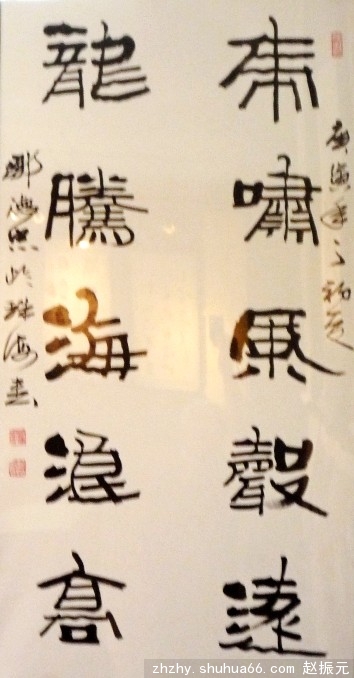 庚寅年之初夏
虎嘯風聲遠
龍騰海浪高
於珠海書
zhzhy.shuhua66.com 赵振元